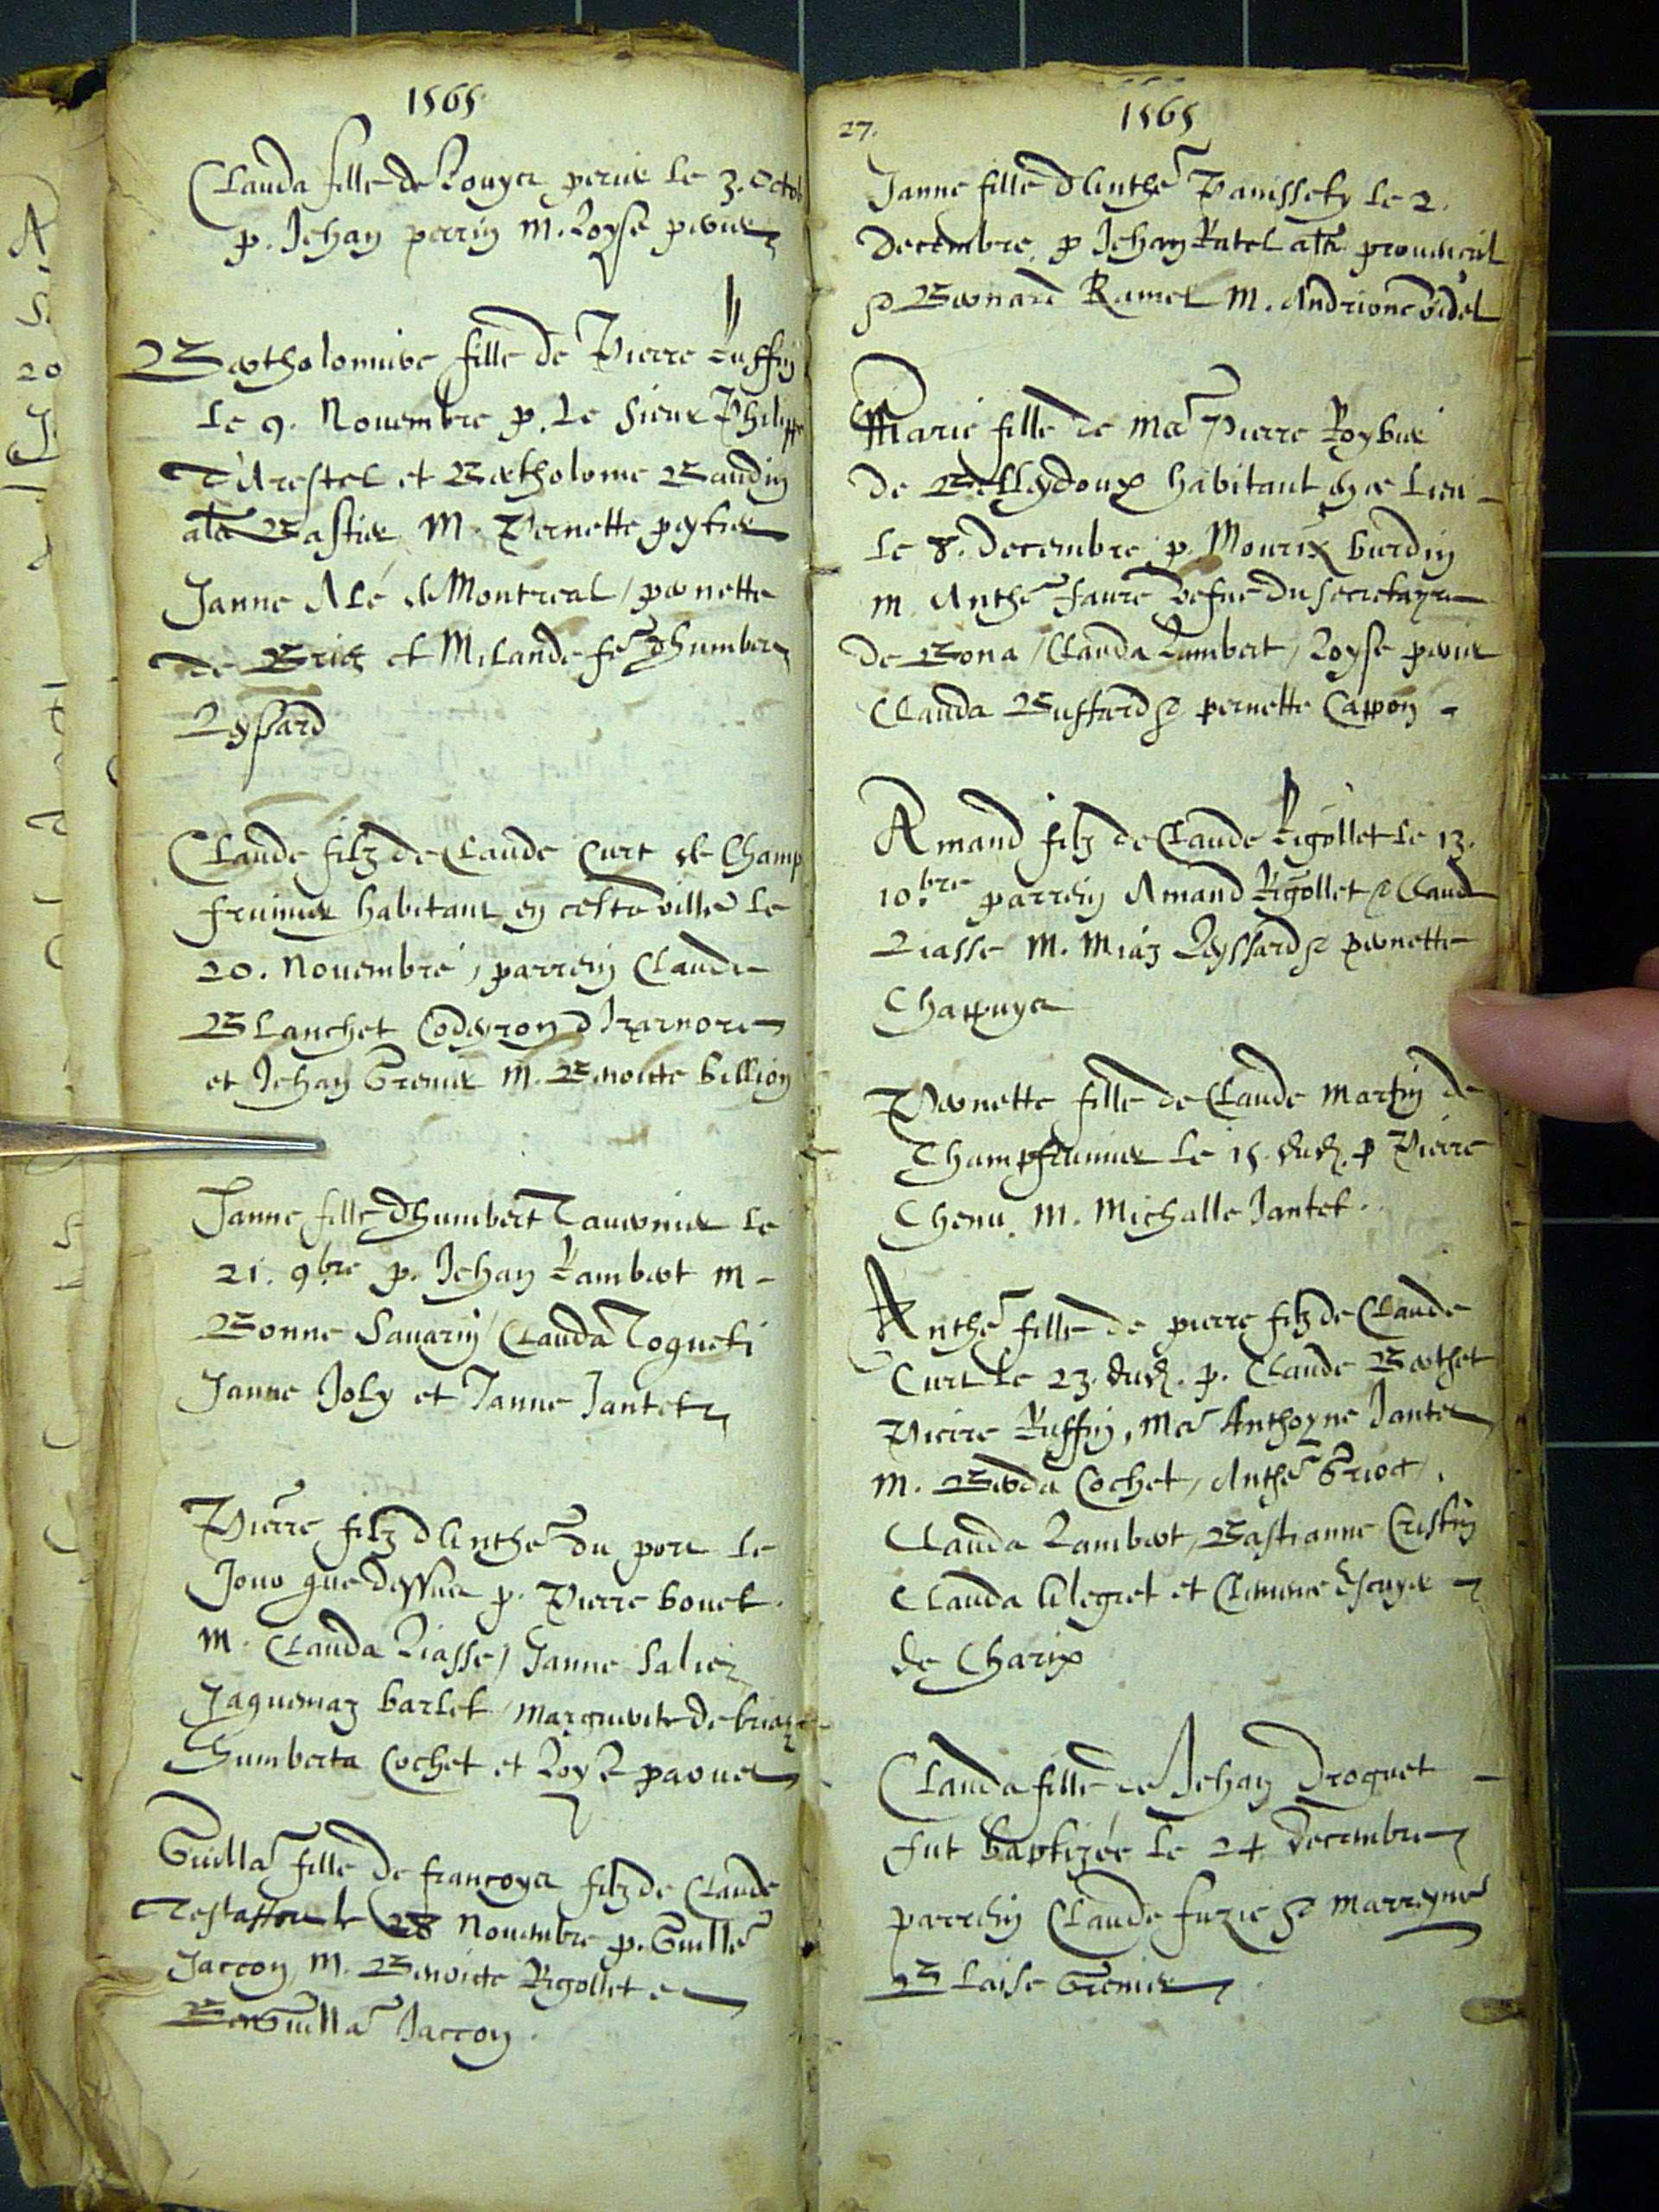 1565
Clauda fille de Rouyer perier le 3. Octob
p. Jehan perrin m. Loyse perier
Bartholomive fille de Pierre Ruffin
le 9. Nouembre p. le sieur Philippe
d'Arestel et Bartholome Baudin
als Bastier M. Pernette
Janne Alé de Montreal / pernette
de et Milande fe d'humbert
Leyssard
Claude filz de Claude Curt de Champ
frumier habitant en ceste ville le
20. Nouembre, parrein Claude
Blanchet Coderon d'Izarnore
et Jehan Grenier M. Benoicte Billion
Janne fille d'humbert Tauernier le
21. 9bre p. Jehan Rambert m-
Bonne Sauarin / Clauda
Janne Joly et Janne Jantet
Pierre filz d'Anthe du port le
Jour que dessus p. Pierre bouet.
m. Clauda Liasse / Janne
Jaquemaz barlet / marguerite de briaz
Humberta Cochet et
Guilla fille de francoys filz de Claude
le 28 Nouembre p. Guille
Jaccon, M. Benoicte Rigollet e
Guilla Jaccon.
27.
1565
Janne fille d'Anthe Panisset le 2.
Decembre, p Jehan Ratel als prouincial
& Bernard Ramel M. Andrione vidal
Marie fille de Me Pierre Roybier
de Belleydoux habitant en ce lieu -
le 8. Decembre, p. Mourix burdin
m. Anthe Faure vefue du secretayre
de Bona / Clauda Lambert / Loyse perier
Clauda Buffard & pernette Cappon -
Amand filz de Claude Rigollet le 13.
10.bre parrein Amand Rigollet & Claud
Liasse M. Miaz Leyssard & pernette
Chappuys
Pernette fille de Claude Martin de
Champfrumier le 15. dud. p Pierre
Chenu. M. Michalle Jantet.
Anthe fille de pierre filz de Claude
Curt le 23. dud. p. Claude Berthet
Pierre Ruffin, Me Anthoyne Jantet
m. Cochet / Anthe
Clauda Lambert / Bastianne Crestin
Clauda Alegret et Escuyer
de Charix
Clauda fille de Jehan Droguet -
fut baptizée le 24 Decembre
parrein Claude & marreyne
Blaise Grenier